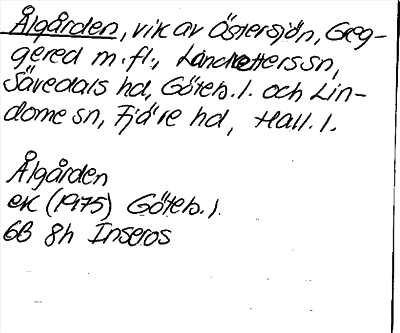 Ålgården, vik av Östersjön, Greg-
gered m.fl., Landvetters sn,
Sävedals hd, Göteb. l. och Lin-
dome sn, Fjäre hd, Hall. l.
Ålgården
ek (1975) Göteb. l.
6B 8h Inseros